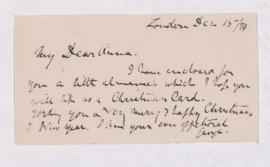 London Dec 15/
My Dear Anna.
I have enclosed for
you a little almanack which I hope you
will like as a Christmas Card.
Wishing you a very merry & happy Christmas
& New Year. I am your own affectional